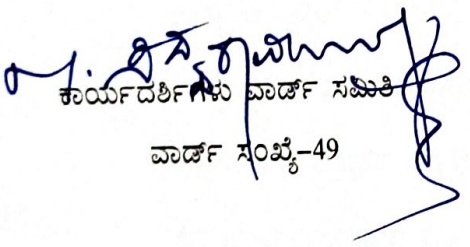 ಕಾರ್ಯದರ್ಶಿಗಳು ವಾರ್ಡ್ ಸಮಿತಿ
ವಾರ್ಡ್ ಸಂಖ್ಯೆ-49